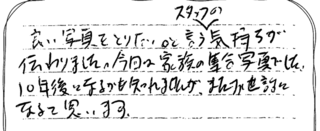 スタッフの
良い写真をとりたい。と言う気持ちが
伝わりました。今回は家族の集合写真でした。
10年後になるかも知れませんが、またお世話に
なると思います。